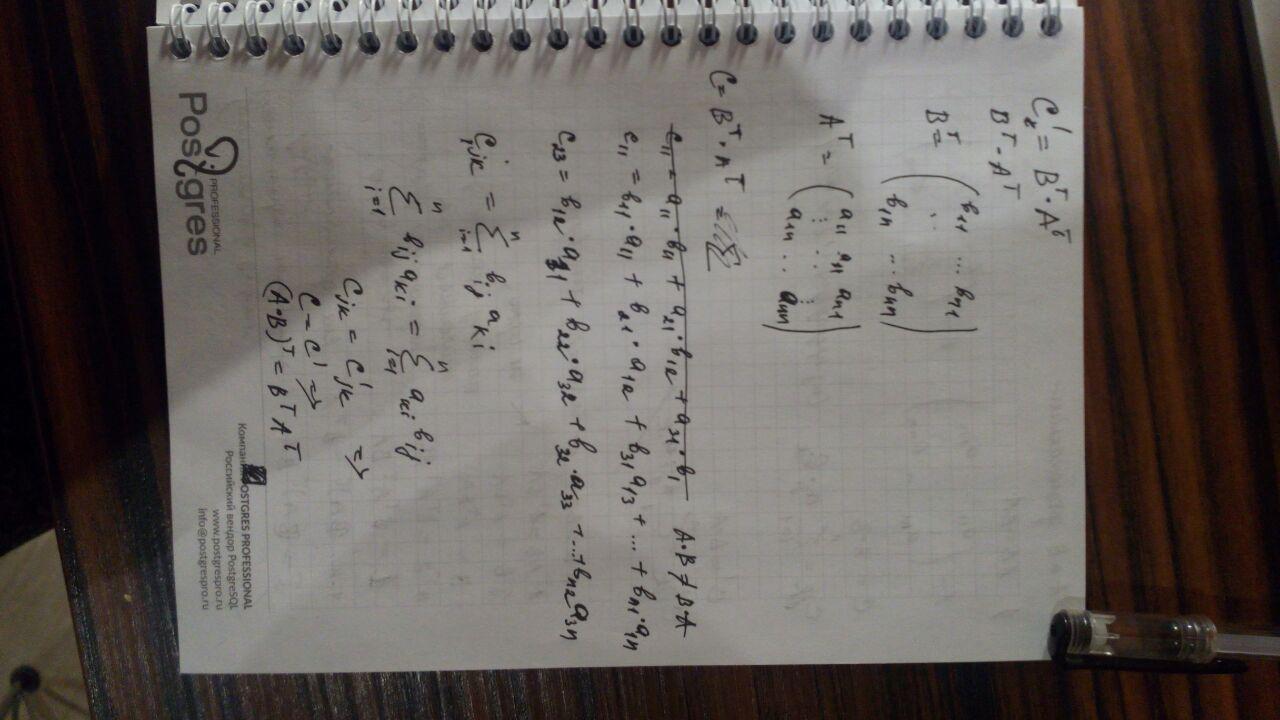 C'ₓ = Bᵀ·Aᵀ
Bᵀ·Aᵀ
Bᵀ = ( b₁₁ ... bₙ₁
. .
b₁ₙ ... bₙₙ )
Aᵀ = ( a₁₁ a₂₁ aₙ₁
⋮ . . ⋮
a₁ₙ .. aₙₙ )
C = Bᵀ·Aᵀ =
c₁₁ = a₁₁·b₁₁ + a₂₁·b₁₂ + a₃₁·b₁ A·B ≠ B·A
c₁₁ = b₁₁·a₁₁ + b₂₁·a₁₂ + b₃₁a₁₃ + ... + bₙ₁·a₁ₙ
c₂₃ = b₁₂·a₃₁ + b₂₂·a₃₂ + b₃₂·a₃₃ + ... + bₙ₂a₃ₙ
c'ⱼₖ = ∑ⁿᵢ₌₁ bᵢⱼ aₖᵢ
∑ⁿᵢ₌₁ bᵢⱼ aₖᵢ = ∑ⁿᵢ₌₁ aₖᵢ bᵢⱼ
Cⱼₖ = C'ⱼₖ =>
C = C' =>
(A·B)ᵀ = Bᵀ Aᵀ
PROFESSIONAL
Postgres
Компания POSTGRES PROFESSIONAL
Российский вендор PostgreSQL
www.postgrespro.ru
info@postgrespro.ru